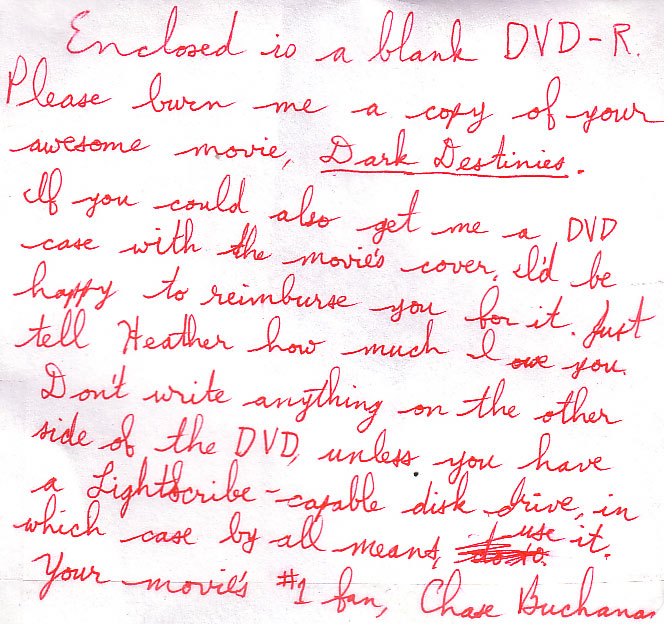 Enclosed is a blank DVD-R.
Please burn me a copy of your
awesome movie, Dark Destinies.
If you could also get me a DVD
case with the movie's cover, I'd be
happy to reimburse you for it. Just
tell Heather how much I owe you.
Don't write anything on the other
side of the DVD, unless you have
a Lightscribe-capable disk drive, in
which case by all means, use it.
Your movie's #1 fan, Chase Buchanan